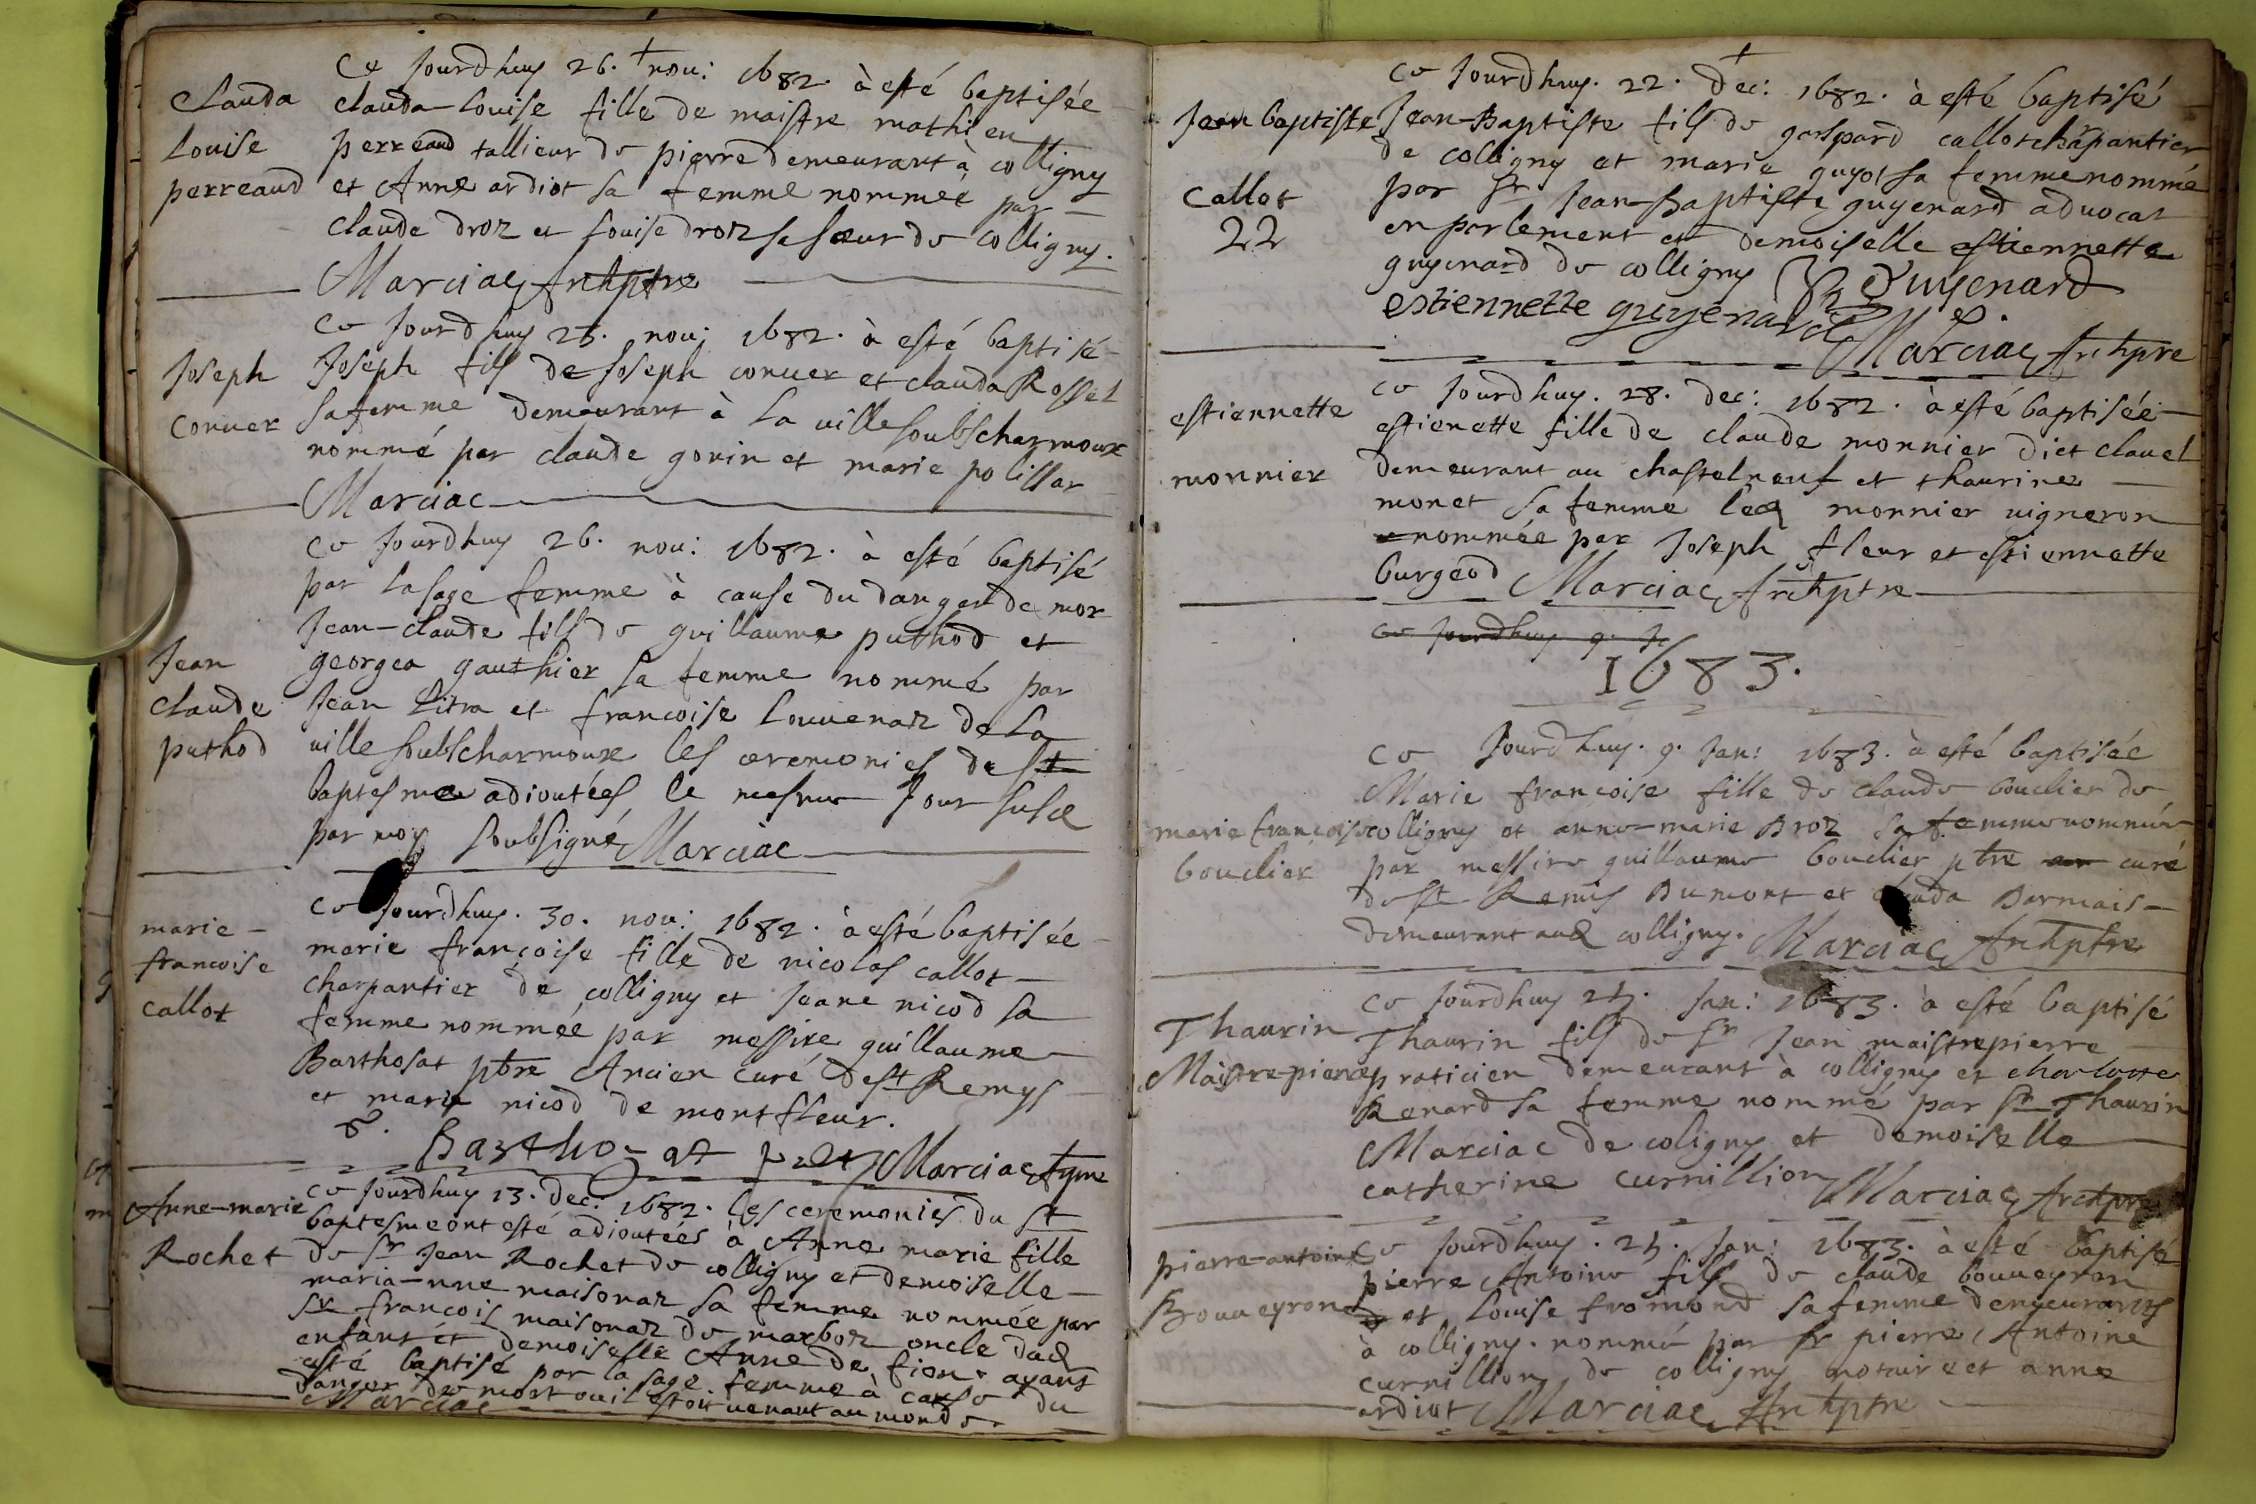 Ce Jourdhuy 26. nou: 1682. à esté baptisée
Clauda
Louise
perreaud
clauda-Louise fille de maistre mathieu
perreaud tallieur de pierre demeurant à colligny
et Anne ardiot sa femme nommeé par
claude droz et Louise droz sa sœur de colligny.
Marciac Archptre
Ce Jourdhuy 25. nou: 1682. à esté baptisé
Joseph
conuer
Joseph fils de Joseph conuer et clauda Rosset
sa femme demeurant à la uille soubscharmoux
nommé par claude gouin et marie polillar
Marciac
Ce Jourdhuy 26. nou: 1682. à esté baptisé
par la sage femme à cause du danger de mor
Jean
claude
puthod
Jean-claude fils de guillaume puthod et
georgea gauthier sa femme nommé par
Jean Litra et francoise Louuenaz de La
uille soubscharmoux les ceremonies du st
baptesme adioutées le mesme Jour susd
par moy soubsigné Marciac
Ce Jourdhuy. 30. nou: 1682. à esté baptisée
marie-
francoise
callot
marie françoise fille de nicolas callot
charpantier de colligny et Jeane nicod sa
femme nommée par messire guillaume
Barthosat ptre Ancien curé de st Remys
et marie nicod de montfleur.
Marciac
Ce Jourdhuy 13. dec: 1682. les ceremonies du st
Anne-marie
Rochet
baptesme ont esté adioutées à Anne marie fille
de sr Jean Rochet de colligny et demoiselle
maria-nne maisonaz sa femme nommée par
sr francois maisonaz de marboz oncle dud
enfant et demoiselle Anne de fion ayant
esté baptisé par la sage femme à cause du
danger de mort ou il estoit uenant au monde.
Marciac
Ce Jourdhuy. 22. dec: 1682. à esté baptisé
Jean baptiste
Callot
22
Jean-Baptiste fils de gaspard callot charpantier
de colligny et marie guyot sa femme nommé
par sr Jean-Baptiste guyenard aduocat
en parlement et demoiselle estiennette
guyenard de colligny Guyenard
estiennette guyenard
Marciac Archpre
Ce Jourdhuy. 28. dec: 1682. à esté baptisée
estiennette
monnier
estienette fille de claude monnier dict clauel
demeurant au chastelneuf et thaurine
monet sa femme led monnier uigneron
nommée par Joseph fleur et estiennette
burgeod Marciac Archptre
ce Jourdhuy 9. Ja
1683.
Ce Jourdhuy. 9. Jan: 1683. à esté baptisée
Marie francoise fille de claude bouclier de
marie françoise
bouclier
colligny et anne-marie Droz sa femme nommée
par messire guillaume bouclier ptre curé
de st Remis Dumont et clauda Darmais
demeurant aud colligny. Marciac Archptre
Ce Jourdhuy 25. Jan: 1683. à esté baptisé
Thaurin
Maistre-pierre
Thaurin fils de sr Jean maistrepierre
praticien demeurant à colligny et charlotte
Renard sa femme nommé par sr Thaurin
Marciac de coligny et demoiselle
catherine curnillion Marciac Archptre
Ce Jourdhuy. 25. Jan: 1683. à esté baptisé
pierre-antoine
Bouueyron
pierre Antoine fils de claude bouueyron
et Louise fromond sa femme demeurants
à colligny. nommé par sr pierre Antoine
curnillion de colligny notaire et anne
ardiot Marciac Archptre